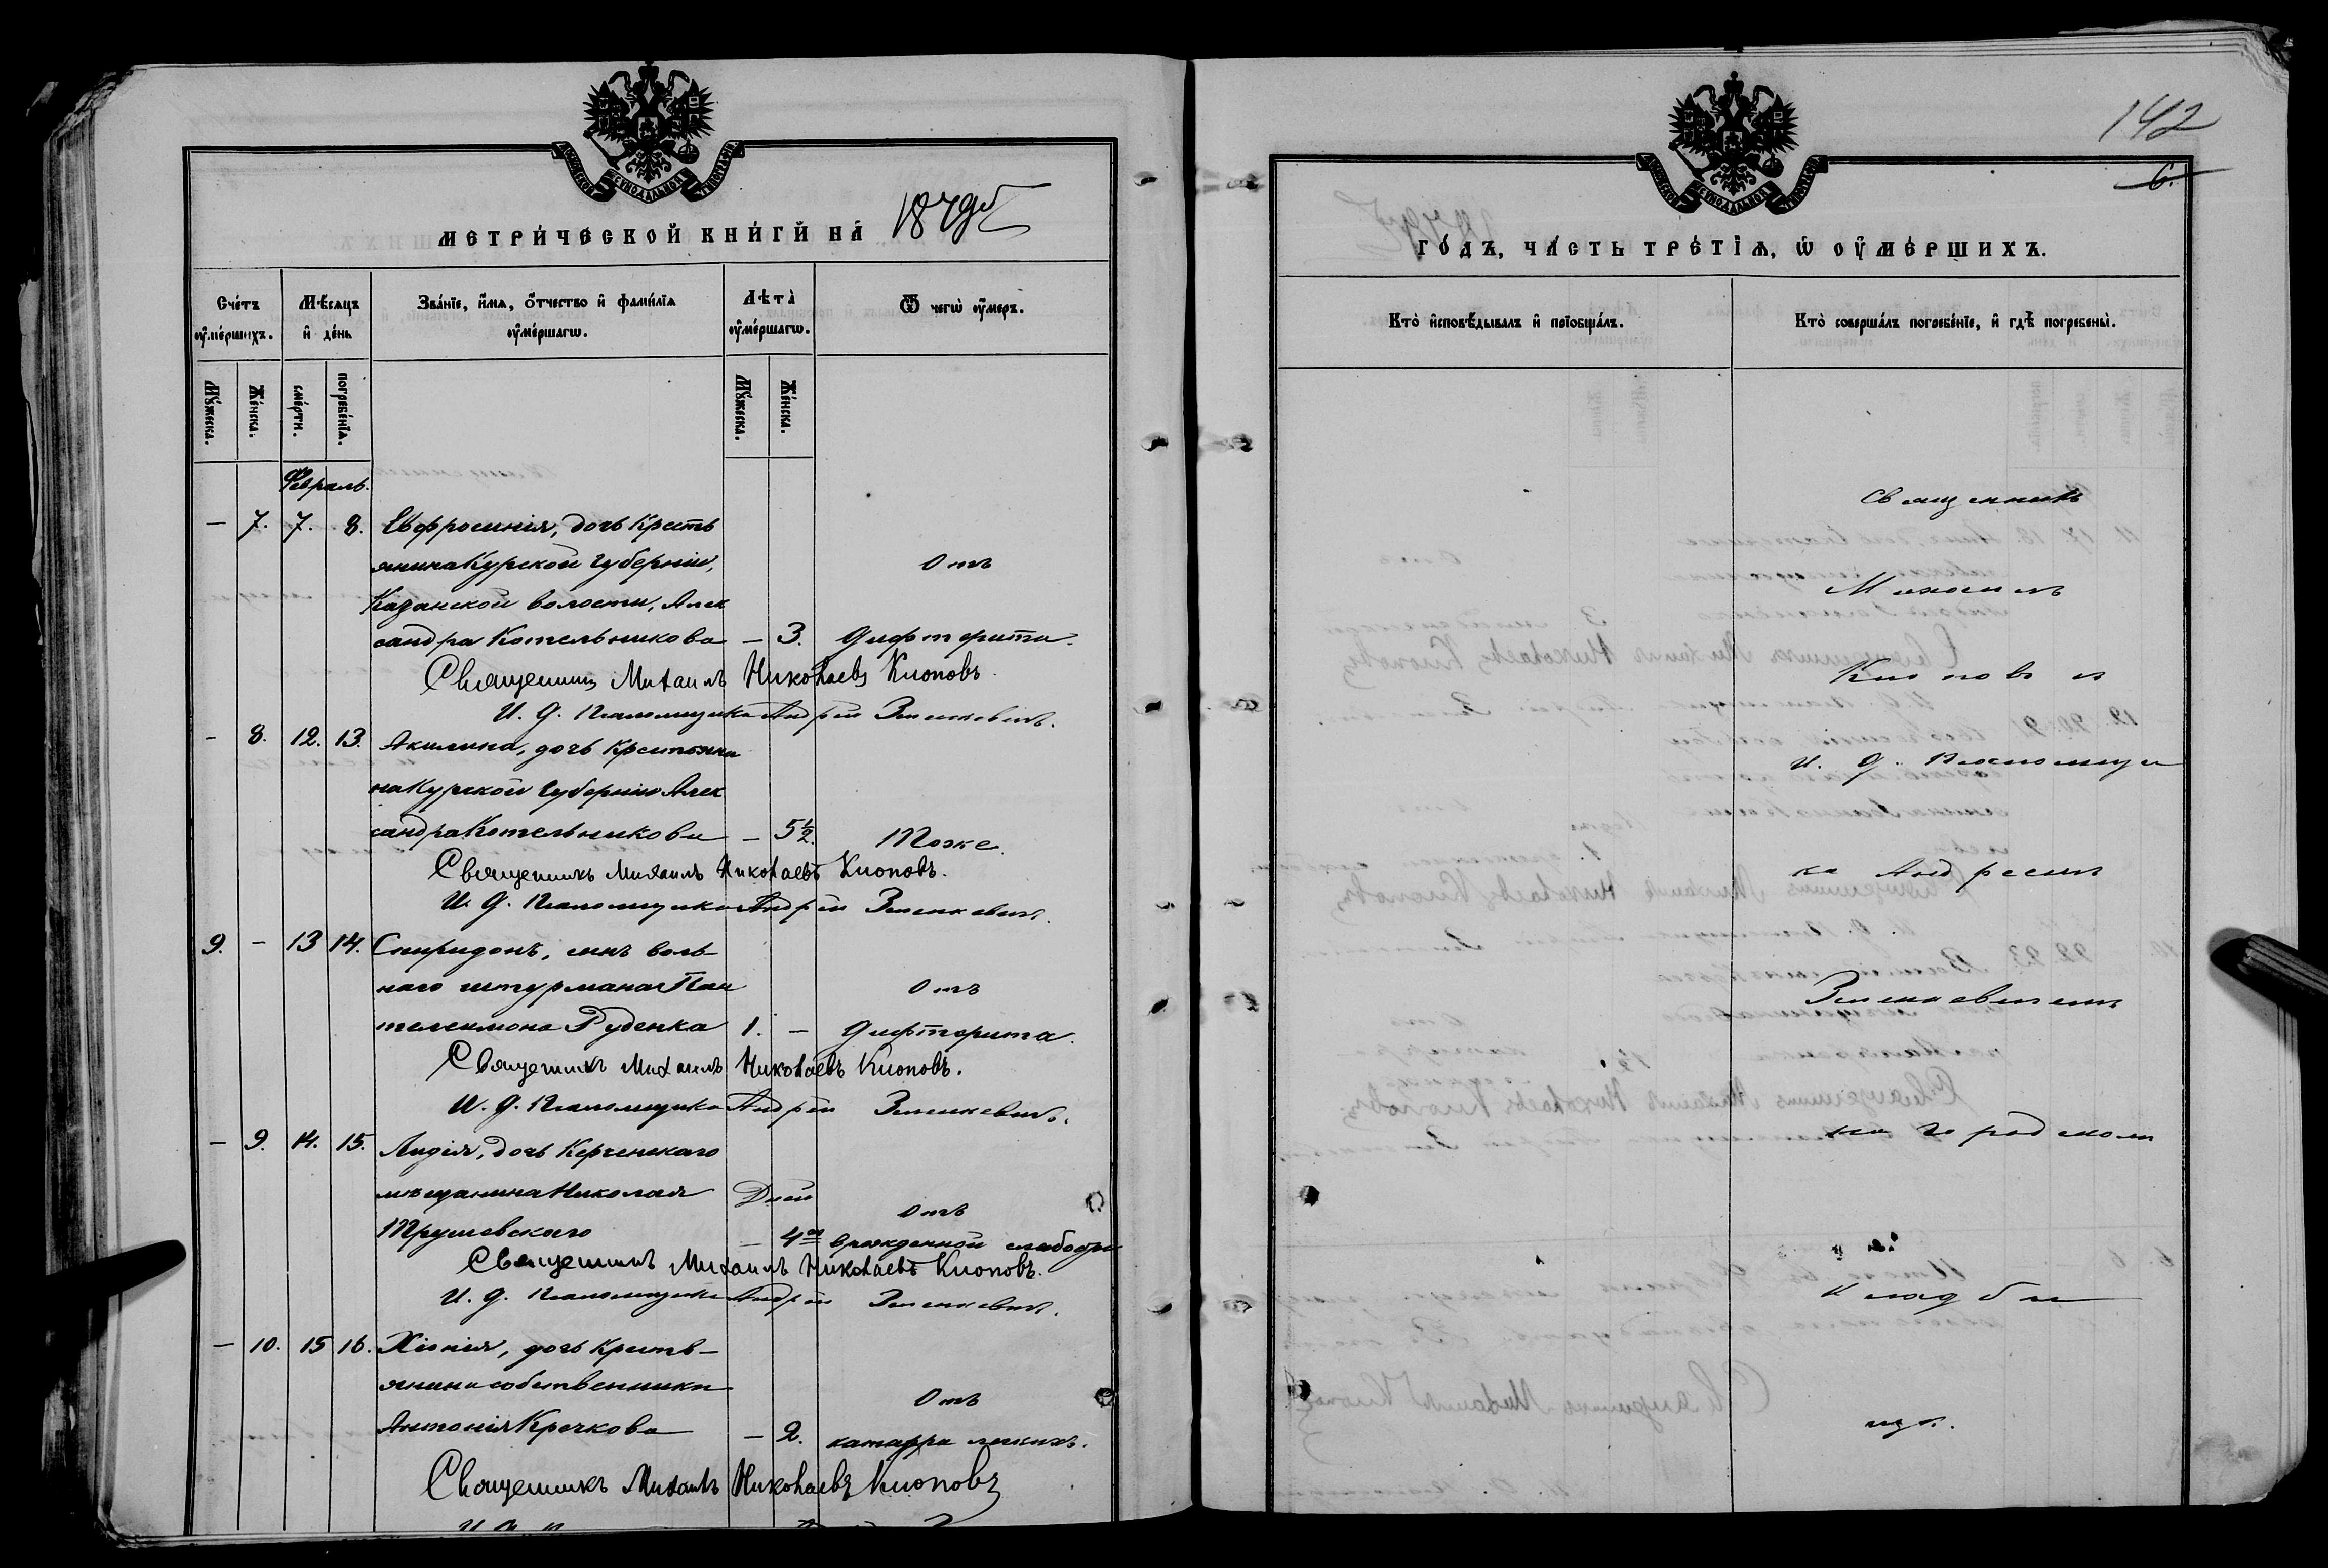 МЕТРИ́ЧЕСКОЙ КНИ́ГИ НА́ 1879й
Сче́тъ оумéршихъ.
Мѣ́сяцъ и де́нь
Зва́нїе, и́мя, ѻ́тчество и фами́лїя оумéршагѡ.
Лѣта̀ оумéршагѡ.
Ѿ чегѡ̀ оу́меръ.
Мꙋ́жеска.
Же́нска.
сме́рти.
погребе́нїя.
Мꙋ́жеска.
Же́нска.
Февраль.
— 7. 7. 8. Евфросинія, дочь кресть
янина Курской губерніи, Отъ
Казанской волости, Алек
сандра Котельникова — 3. дифтерита.
Священникъ Михаилъ Николаевъ Клоповъ.
И. д. псаломщика Андрей Зѣнкевичъ.
— 8. 12. 13. Акилина, дочь крестьяни
на Курской губерніи Алек
сандра Котельникова — 5½. Тоже.
Священникъ Михаилъ Николаевъ Клоповъ.
И. д. псаломщика Андрей Зѣнкевичъ.
9. — 13 14. Спиридонъ, сынъ воль
наго штурмана Пан Отъ
телеимона Руденка 1. — дифтерита.
Священникъ Михаилъ Николаевъ Клоповъ.
И. д. псаломщика Андрей Зѣнкевичъ.
— 9. 14. 15. Лидія, дочь Керченскаго
мѣщанина Николая Дней Отъ
Трушевскаго — 4 врожденной слабости
Священникъ Михаилъ Николаевъ Клоповъ.
И. д. псаломщика Андрей Зѣнкевичъ.
— 10. 15 16. Хіонія, дочь кресть—
янина собственника Отъ
Антонія Кречкова — 2. катарра легкихъ.
Священникъ Михаилъ Николаевъ Клоповъ
142
6.
ГО́ДЪ, ЧА́СТЬ ТРЕ́ТЇЯ, Ѡ ОУМЕ́РШИХЪ.
Кто̀ исповѣ́дывалъ и прїобща́лъ.
Кто̀ соверша́лъ погребе́нїе, и гдѣ̀ погребены̀.
Священникъ
Михаилъ
Клоповъ и
и. д. псаломщи
ка Андреемъ
Зѣнкевичемъ
на городскомъ
кладби
щѣ.